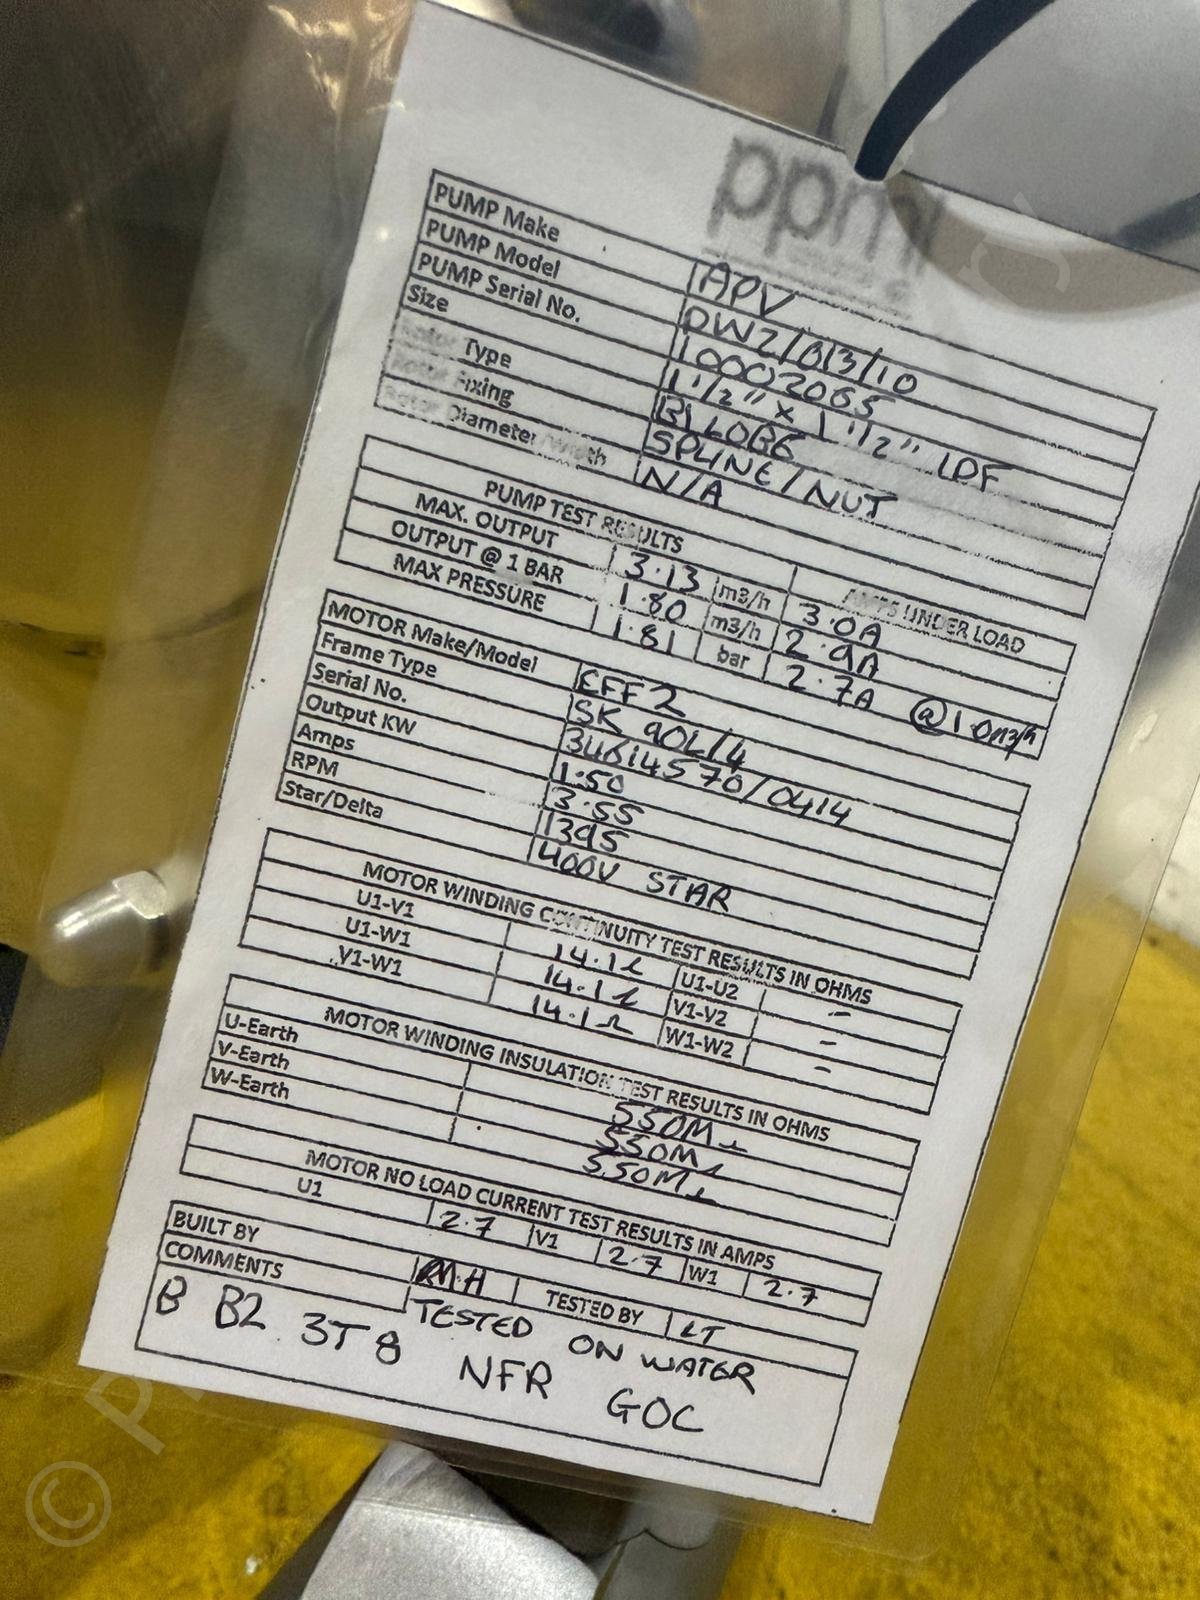 ppmi
PUMP Make APV
PUMP Model DW2/013/10
PUMP Serial No. 10002065
Size 1 1/2" x 1 1/2" LDF
Rotor Type BILOBE
Rotor Fixing SPLINE/NUT
Rotor Diameter/Width N/A
PUMP TEST RESULTS AMPS UNDER LOAD
MAX. OUTPUT 3.13 m3/h 3.0A
OUTPUT @ 1 BAR 1.80 m3/h 2.9A
MAX PRESSURE 1.81 bar 2.7A @1.0m3/h
MOTOR Make/Model EFF2
Frame Type SK 90L/4
Serial No. 34614570/0414
Output KW 1.50
Amps 3.55
RPM 1395
Star/Delta 400V STAR
MOTOR WINDING CONTINUITY TEST RESULTS IN OHMS
U1-V1 14.1Ω U1-U2 -
U1-W1 14.1Ω V1-V2 -
V1-W1 14.1Ω W1-W2 -
MOTOR WINDING INSULATION TEST RESULTS IN OHMS
U-Earth 550MΩ
V-Earth 550MΩ
W-Earth 550MΩ
MOTOR NO LOAD CURRENT TEST RESULTS IN AMPS
U1 2.7 V1 2.7 W1 2.7
BUILT BY M.H TESTED BY LT
COMMENTS TESTED ON WATER
B B2 3T8 NFR GOC